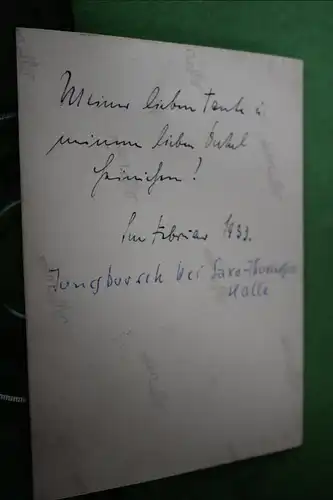 Meiner lieben Tante u
meinem lieben Onkel
Heinichen!
Im Februar 1933.
Jungbursch bei Saxo-Thuringia
Halle